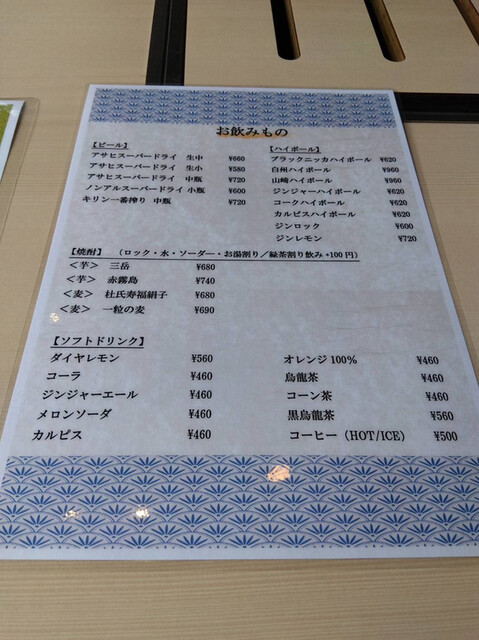 お飲みもの
【ビール】
アサヒスーパードライ 生中 ¥660
アサヒスーパードライ 生小 ¥580
アサヒスーパードライ 中瓶 ¥720
ノンアルスーパードライ 小瓶 ¥600
キリン一番搾り 中瓶 ¥720
【ハイボール】
ブラックニッカハイボール ¥620
白州ハイボール ¥960
山崎ハイボール ¥960
ジンジャーハイボール ¥620
コークハイボール ¥620
カルピスハイボール ¥620
ジンロック ¥600
ジンレモン ¥720
【焼酎】 (ロック・水・ソーダー・お湯割り/緑茶割り飲み+100円)
<芋> 三岳 ¥680
<芋> 赤霧島 ¥740
<麦> 杜氏寿福絹子 ¥680
<麦> 一粒の麦 ¥690
【ソフトドリンク】
ダイヤレモン ¥560
コーラ ¥460
ジンジャーエール ¥460
メロンソーダ ¥460
カルピス ¥460
オレンジ100% ¥460
烏龍茶 ¥460
コーン茶 ¥460
黒烏龍茶 ¥560
コーヒー(HOT/ICE) ¥500